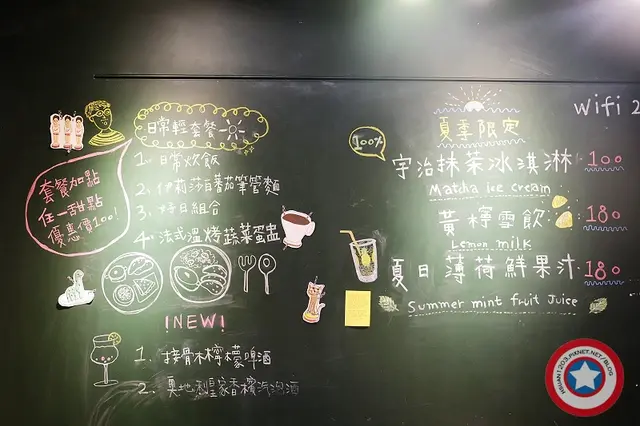 日常輕套餐
1. 日常炊飯
2. 伊莉莎白蕃茄筆管麵
3. 好日組合
4. 法式溫烤蔬菜蛋盅
套餐加點
任一甜點
優惠價100!
!NEW!
1. 接骨木檸檬啤酒
2. 奧地利皇家香檳汽泡酒
wifi 2
夏季限定
100%
宇治抹茶冰淇淋 100
Matcha ice cream
黃檸雪飲 180
Lemon milk
夏日薄荷鮮果汁 180
Summer mint fruit Juice
HSUAN1203.PIXNET.NET/BLOG